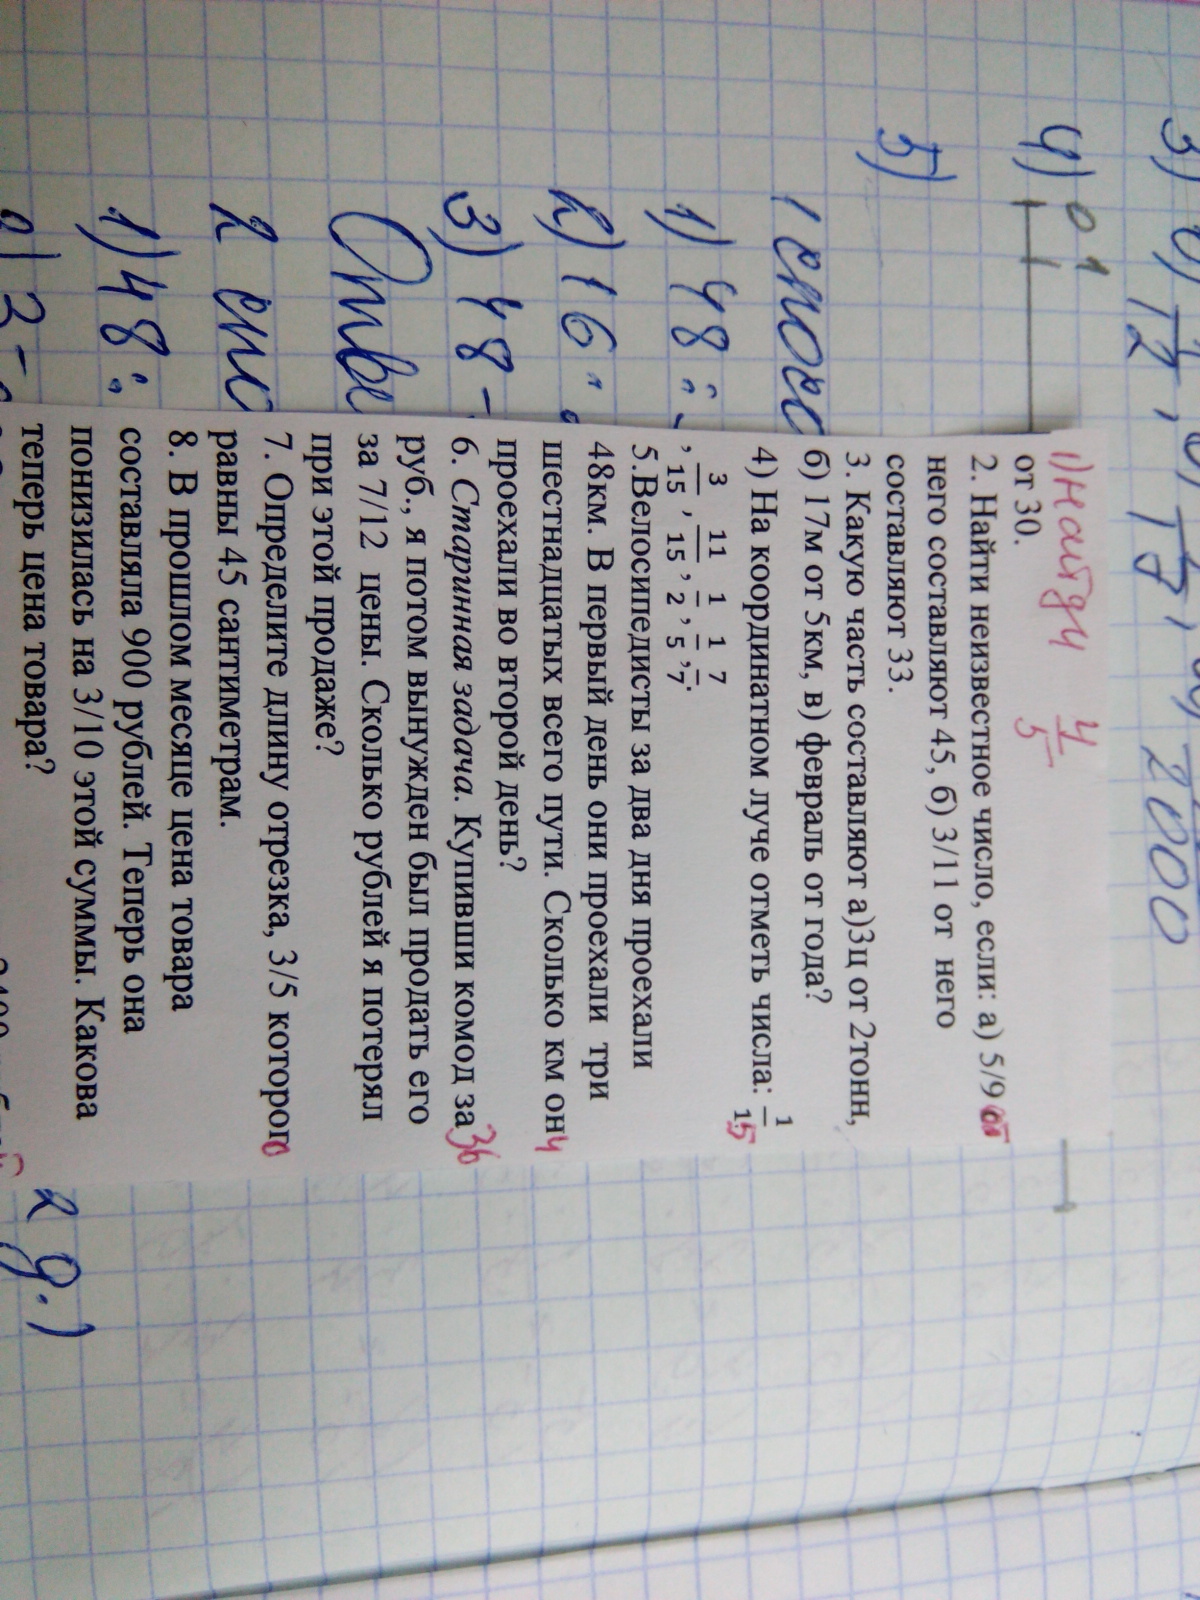 3)
2000
4) 0 1
5)
1 спосо
1) 48 :
2) 16 :
3) 48 -
Отве
2 спо
1) 48 :
2) 3 -
2 д.)
1) Найди 4/5
от 30.
2. Найти неизвестное число, если: а) 5/9 от
него составляют 45, б) 3/11 от него
составляют 33.
3. Какую часть составляют а)3ц от 2тонн,
б) 17м от 5км, в) февраль от года?
4) На координатном луче отметь числа: 1/15
, 3/15, 11/15, 1/2, 1/5, 7/7.
5.Велосипедисты за два дня проехали
48км. В первый день они проехали три
шестнадцатых всего пути. Сколько км они
проехали во второй день?
6. Старинная задача. Купивши комод за 36
руб., я потом вынужден был продать его
за 7/12 цены. Сколько рублей я потерял
при этой продаже?
7. Определите длину отрезка, 3/5 которого
равны 45 сантиметрам.
8. В прошлом месяце цена товара
составляла 900 рублей. Теперь она
понизилась на 3/10 этой суммы. Какова
теперь цена товара?